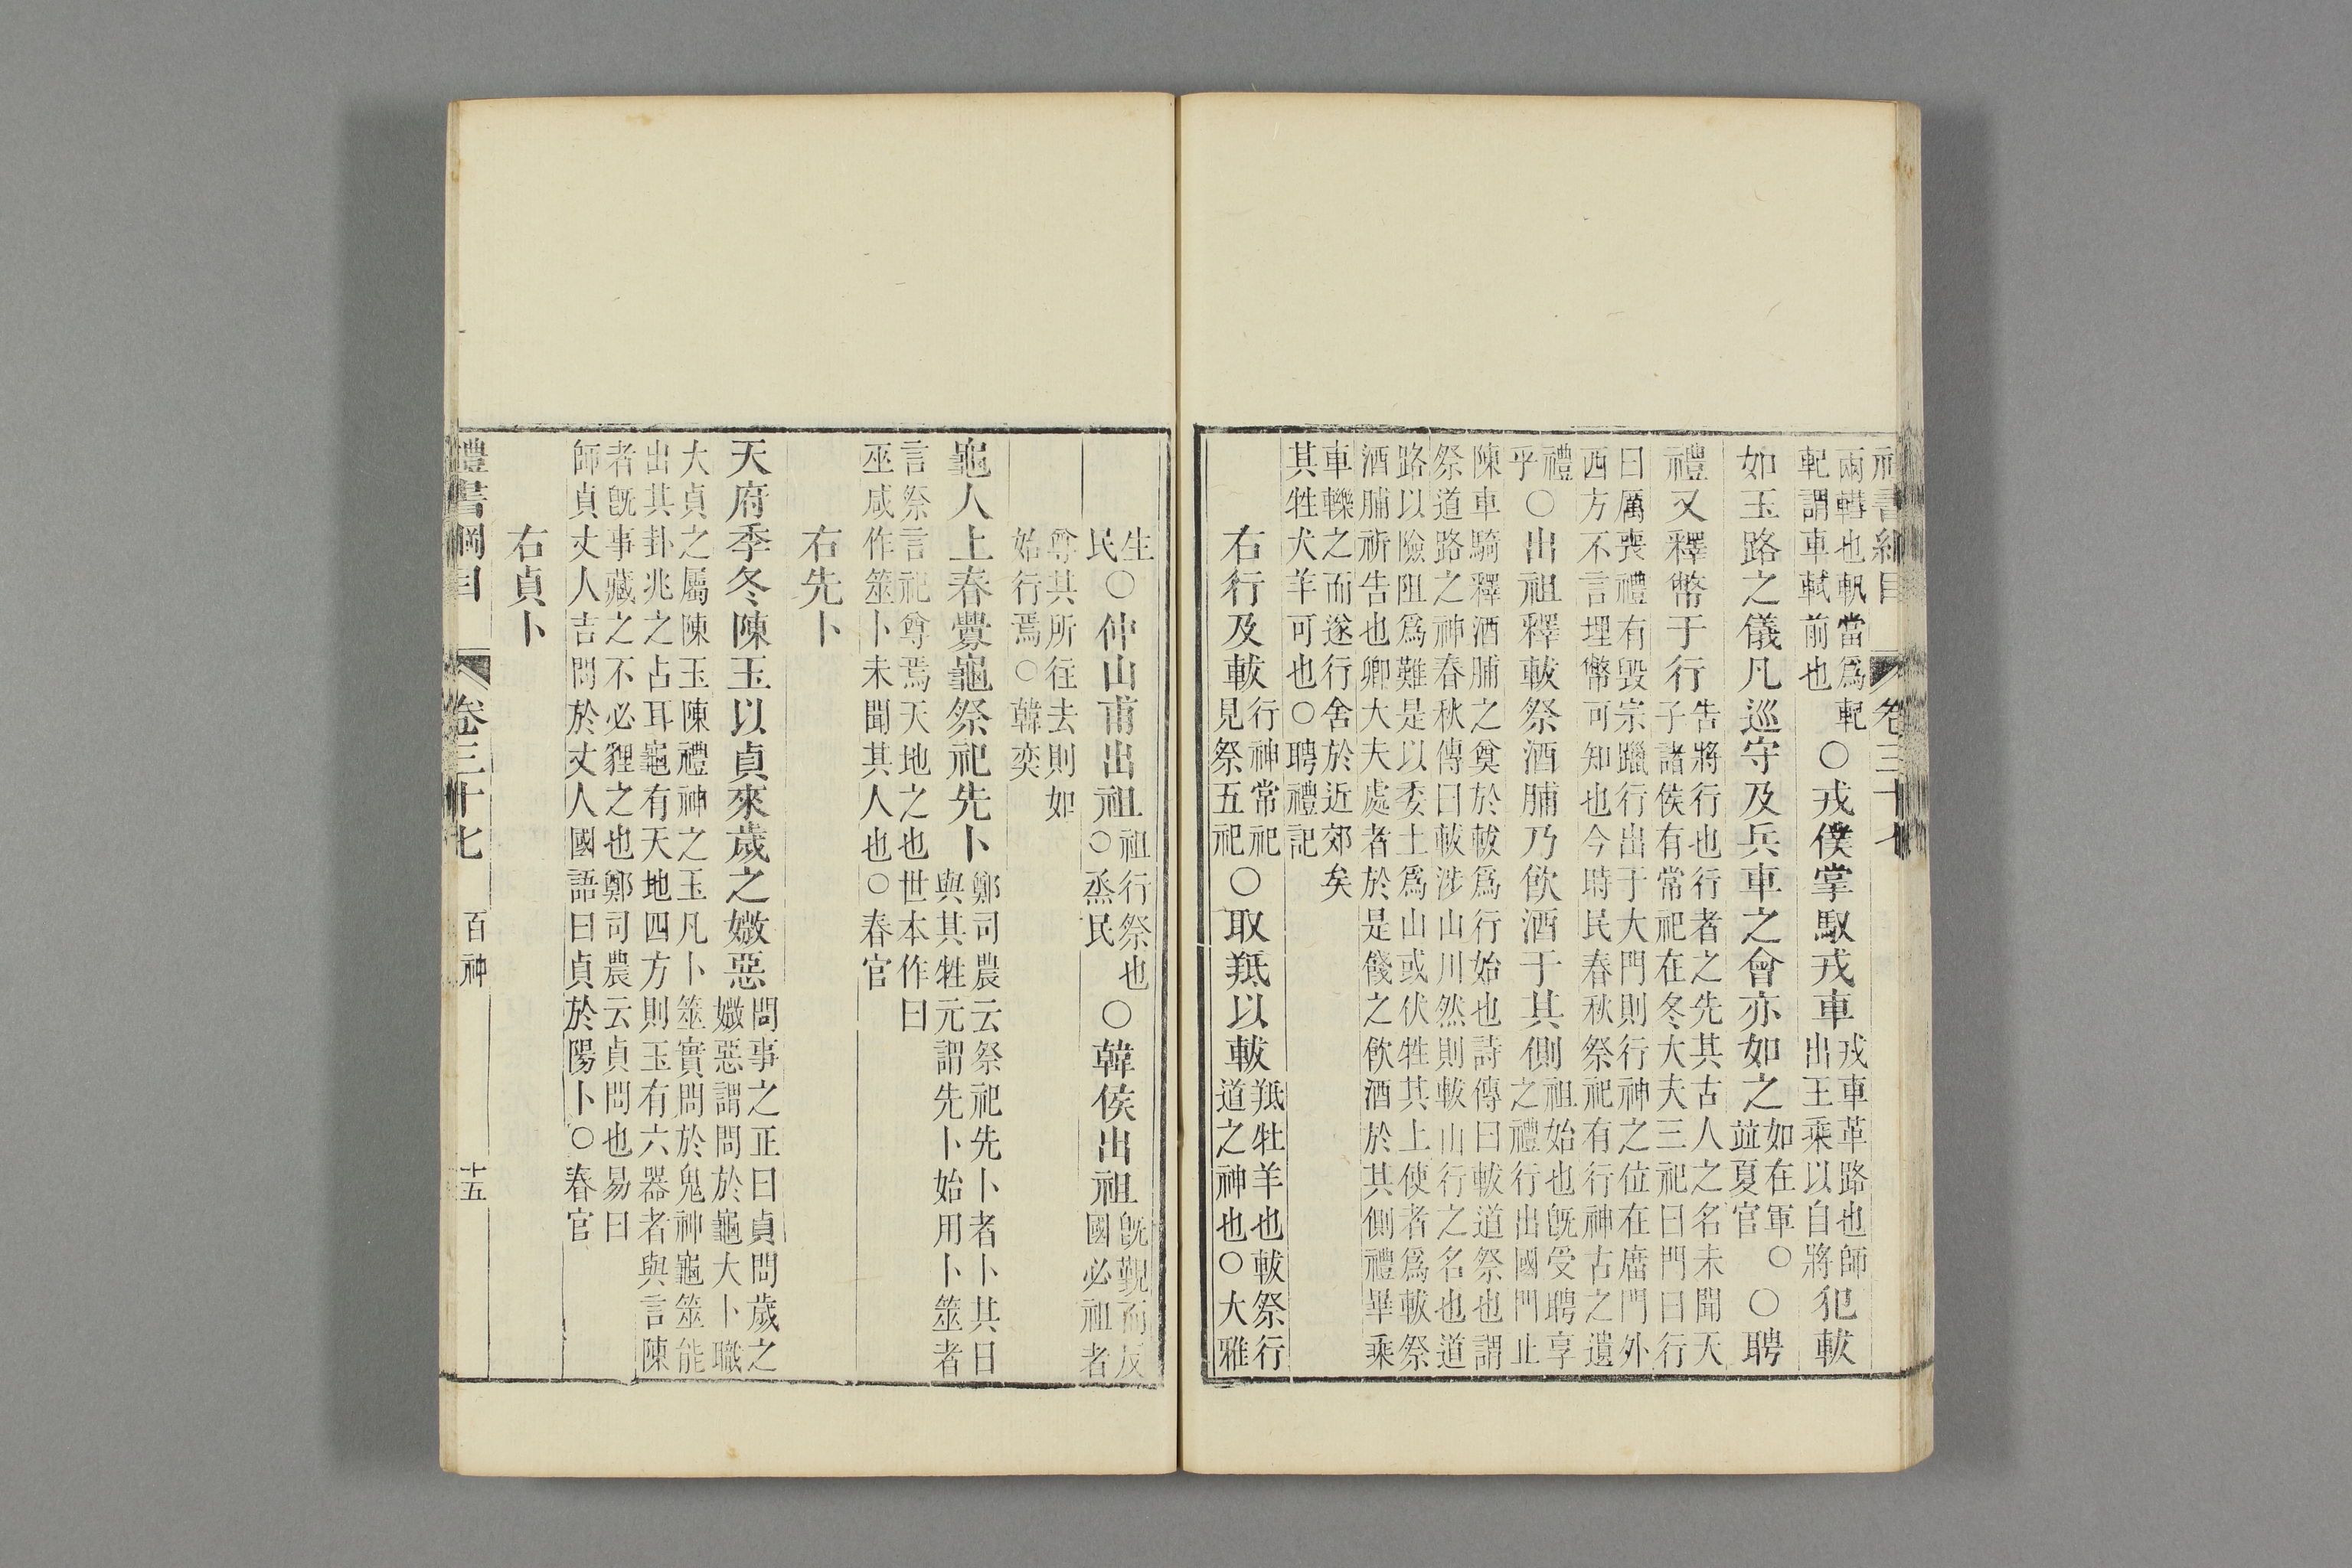 禮書綱目 卷三十七
兩轊也軓當爲軓
軓謂車軾前也
○戎僕掌馭戎車
戎車革路也師
出王乘以自將
犯軷
如玉路之儀凡巡守及兵車之會亦如之
如在軍○
竝夏官
○聘
禮又釋幣于行
告將行也行者之先其古人之名未聞天
子諸侯有常祀在冬大夫三祀曰門曰行
曰厲喪禮有毀宗躐行出于大門則行神之位在庿門外
西方不言埋幣可知也今時民春秋祭祀有行神古之遺
禮
乎
○出祖釋軷祭酒脯乃飲酒于其側
祖始也旣受聘享
之禮行出國門止
陳車騎釋酒脯之奠於軷爲行始也詩傳曰軷道祭也謂
祭道路之神春秋傳曰軷涉山川然則軷山行之名也道
路以險阻爲難是以委土爲山或伏牲其上使者爲軷祭
酒脯祈告也卿大夫處者於是餞之飲酒於其側禮畢乘
車轢之而遂行舍於近郊矣
其牲犬羊可也○聘禮記
右行及軷
行神常祀
見祭五祀
○取羝以軷
羝牡羊也軷祭行
道之神也○大雅
生
民
○仲山甫出祖
祖行祭也
○烝民
○韓侯出祖
旣覲而反
國必祖者
尊其所往去則如
始行焉○韓奕
龜人上春釁龜祭祀先卜
鄭司農云祭祀先卜者卜其日
與其牲元謂先卜始用卜筮者
言祭言祀尊焉天地之也世本作曰
巫咸作筮卜未聞其人也○春官
右先卜
天府季冬陳玉以貞來歲之媺惡
問事之正曰貞問歲之
媺惡謂問於龜大卜職
大貞之屬陳玉陳禮神之玉凡卜筮實問於鬼神龜筮能
出其卦兆之占耳龜有天地四方則玉有六器者與言陳
者旣事藏之不必貍之也鄭司農云貞問也易曰
師貞丈人吉問於丈人國語曰貞於陽卜○春官
右貞卜
禮書綱目 卷三十七 百神 十五